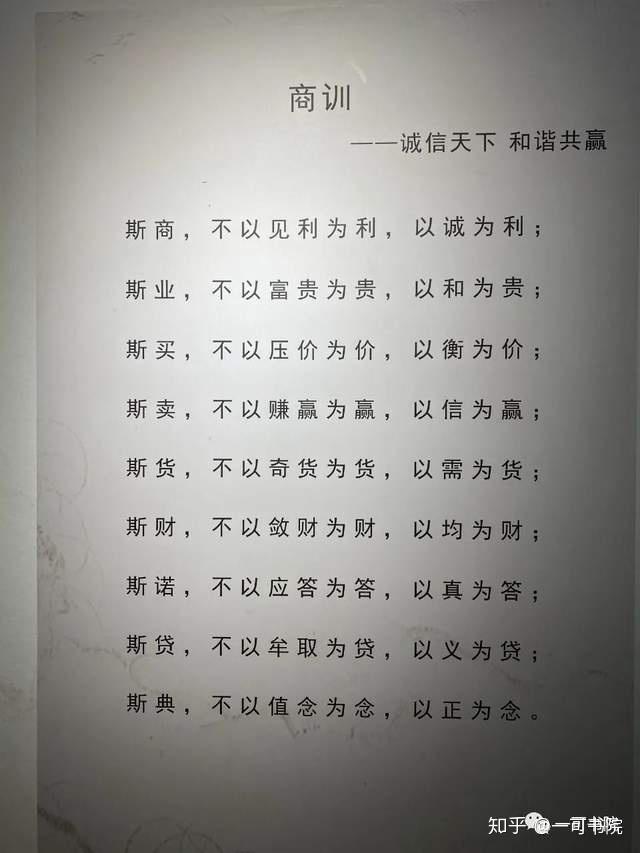 商训
——诚信天下 和谐共赢
斯商，不以见利为利，以诚为利；
斯业，不以富贵为贵，以和为贵；
斯买，不以压价为价，以衡为价；
斯卖，不以赚赢为赢，以信为赢；
斯货，不以奇货为货，以需为货；
斯财，不以敛财为财，以均为财；
斯诺，不以应答为答，以真为答；
斯贷，不以牟取为贷，以义为贷；
斯典，不以值念为念，以正为念。
知乎 @一可书院